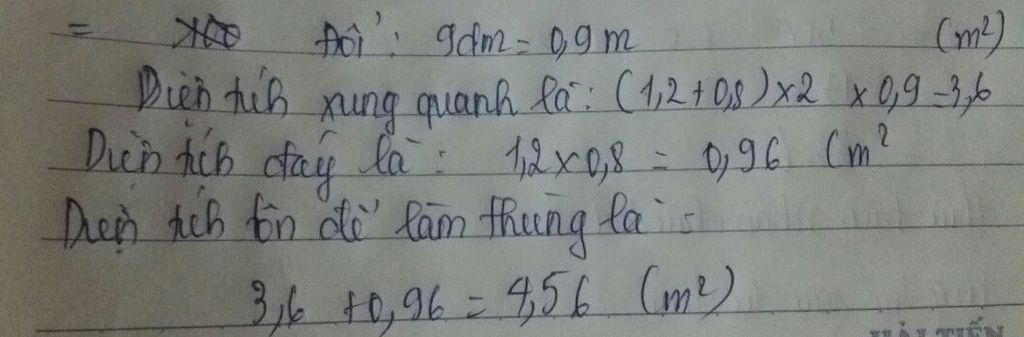 = Đổi : 9dm = 0,9m (m²)
Diện tích xung quanh là : (1,2 + 0,8) × 2 × 0,9 = 3,6
Diện tích đáy là : 1,2 × 0,8 = 0,96 (m²
Diện tích tôn để làm thùng là :
3,6 + 0,96 = 4,56 (m²)